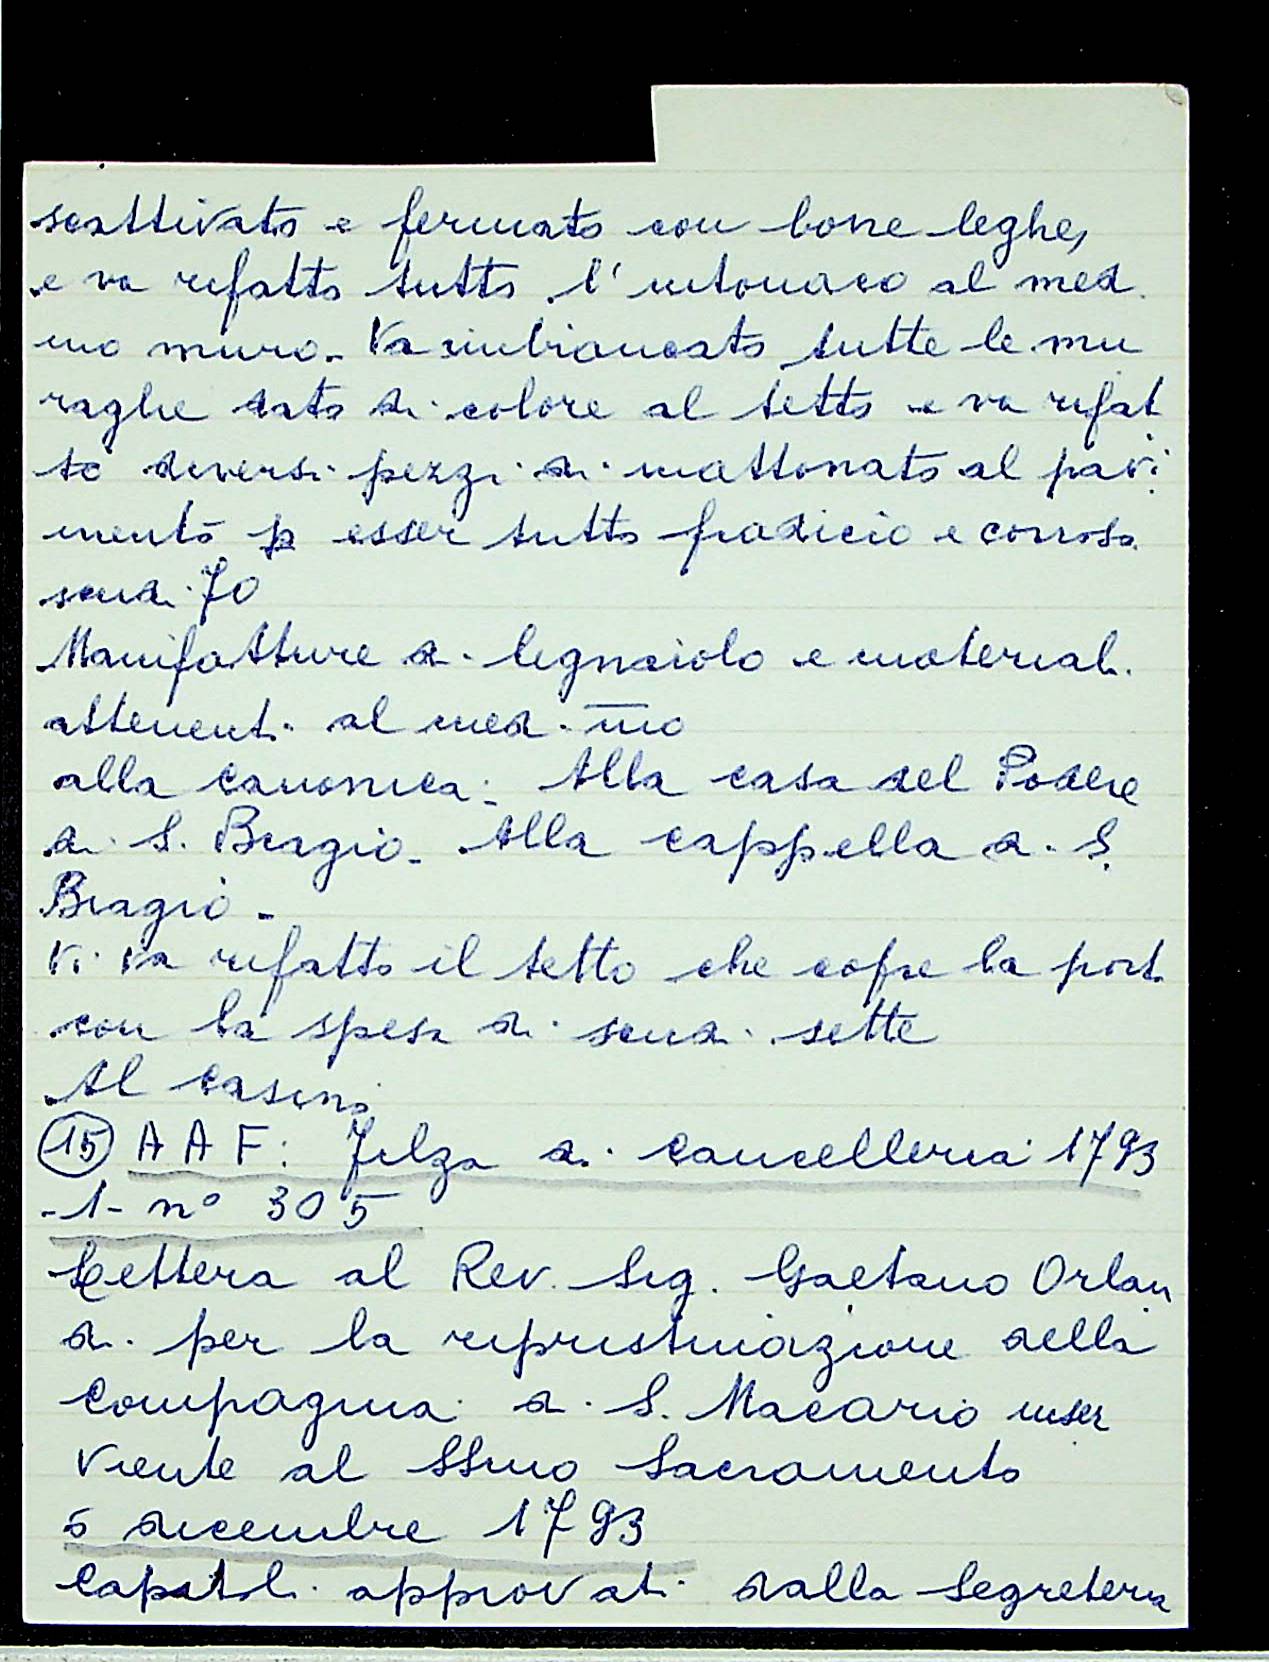 scattivato e fermato con bone leghe,
e va rifatto tutto l'intonaco al med.
mo muro. Va imbiancato tutte le mu
raglie dato di colore al tetto e va rifat
to diversi pezzi di mattonato al pavi
mento p esser tutto fradicio e corroso
scudi 70
Manifatture di legnaiolo e materiali
attenenti al med. mo
alla canonica: Alla casa del Podere
di S. Biagio. Alla cappella di S.
Biagio -
Vi va rifatto il tetto che copre la port
con la spesa di scudi sette
Al casino
15 A A F: Filza di cancelleria 1793
-1- n° 305
Lettera al Rev. Sig. Gaetano Orlan
di per la ripristinazione della
Compagnia di S. Macario inser
viente al SSmo Sacramento
5 dicembre 1793
Capitoli approvati dalla Segreteria